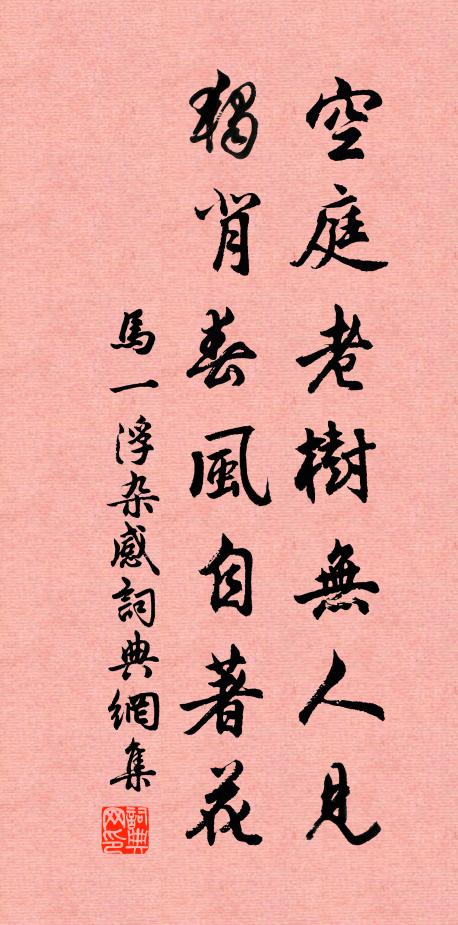 空庭老樹無人見
獨背春風自著花
馬一浮杂感詞典網集
詞典网印